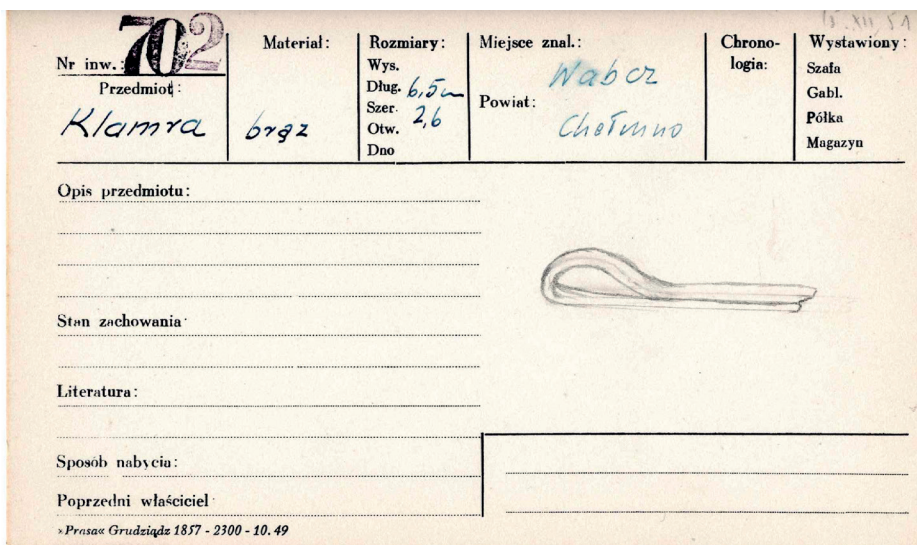 15.XII.51
Nr inw.: 702
Przedmiot:
Klamra
Materiał:
brąz
Rozmiary:
Wys.
Dług. 6,5 cm
Szer. 2,6
Otw.
Dno
Miejsce znal.:
Wabcz
Powiat:
Chełmno
Chrono-
logia:
Wystawiony:
Szafa
Gabl.
Półka
Magazyn
Opis przedmiotu:
Stan zachowania
Literatura:
Sposób nabycia:
Poprzedni właściciel
»Prasa« Grudziądz 1857 - 2300 - 10. 49